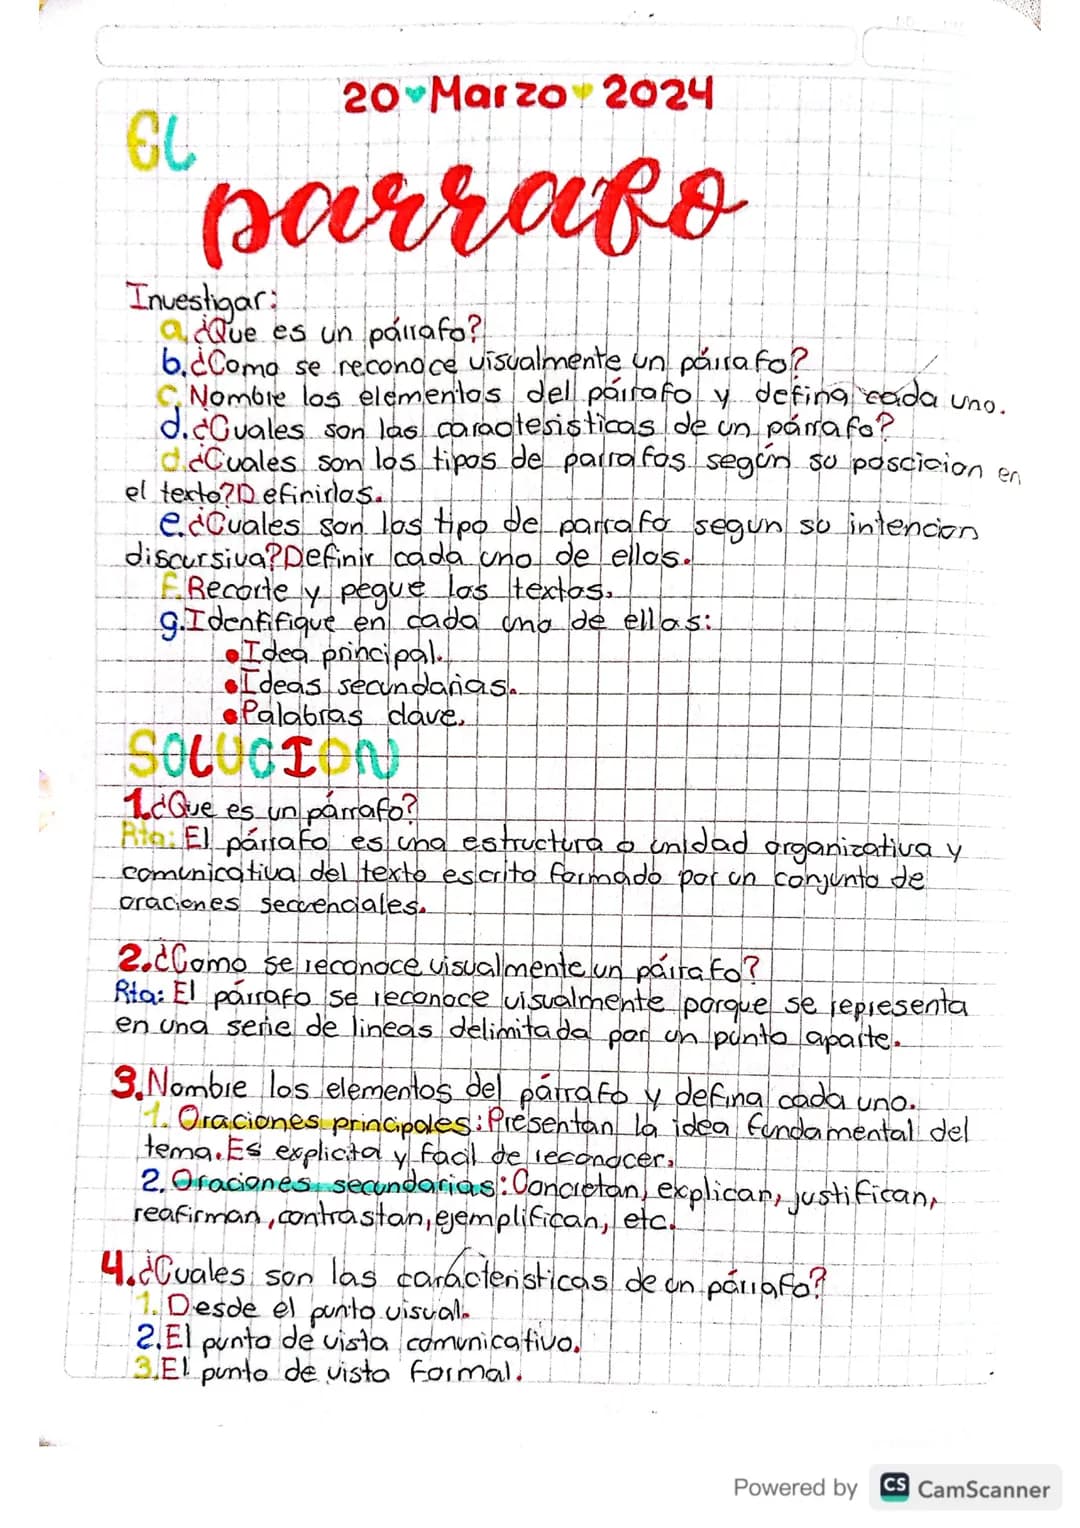 20 Marzo 2024
EL
parrafo
Investigar:
a. ¿Que es un párrafo?
b. ¿Como se reconoce visualmente un párrafo?
C. Nombre los elementos del párrafo y defina cada uno.
d. ¿Cuales son las caractesisticas de un párrafo?
d. ¿Cuales son los tipos de parrafos según su poscicion en
el texto? Definirlos.
e. ¿Cuales son los tipo de parrafo segun su intencion
discursiva? Definir cada uno de ellos.
F. Recorte y pegue los textos.
g. Idenfifique en cada uno de ellos:
• Idea principal.
• Ideas secundarias.
• Palabras clave.
SOLUCION
1. ¿Que es un párrafo?
Rta: El párrafo es una estructura o unidad organizativa y
comunicativa del texto escrito formado por un conjunto de
oraciones secuenciales.
2. ¿Como se reconoce visualmente un párrafo?
Rta: El párrafo se reconoce visualmente porque se representa
en una serie de lineas delimitada por un punto aparte.
3. Nombre los elementos del párrafo y defina cada uno.
1. Oraciones principales: Presentan la idea fundamental del
tema. Es explicita y facil de reconocer.
2. Oraciones secundarias: Concretan, explican, justifican,
reafirman, contrastan, ejemplifican, etc.
4. ¿Cuales son las carácteristicas de un párrafo?
1. Desde el punto visual.
2. El punto de vista comunicativo.
3. El punto de vista formal.
Powered by CS CamScanner